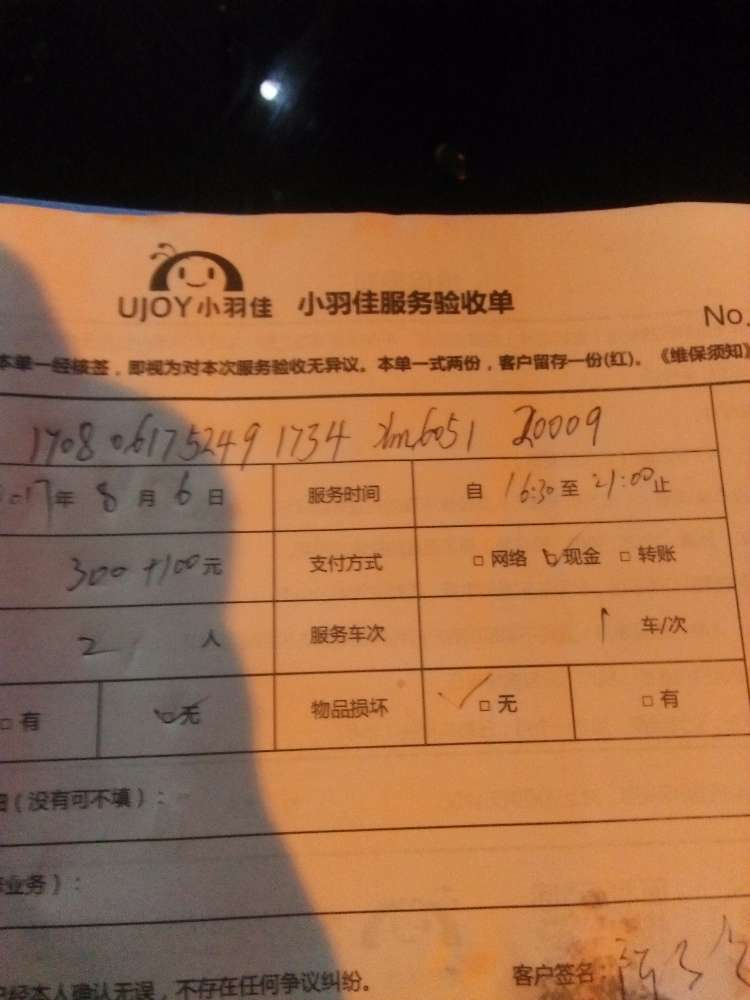 UJOY小羽佳 小羽佳服务验收单
No.
本单一经核签，即视为对本次服务验收无异议。本单一式两份，客户留存一份(红)。《维保须知》
170806175249 1734 xm6051 20009
017年 8月 6日 服务时间 自 16:30 至 21:00 止
300+100元 支付方式 □网络 □现金 □转账
2 人 服务车次 1 车/次
□有 □无 物品损坏 □无 □有
（没有可不填）：
业务）：
经本人确认无误，不存在任何争议纠纷。 客户签名：